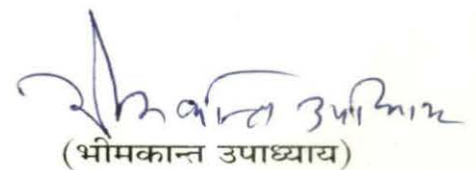 भीमकान्त उपाध्याय
(भीमकान्त उपाध्याय)